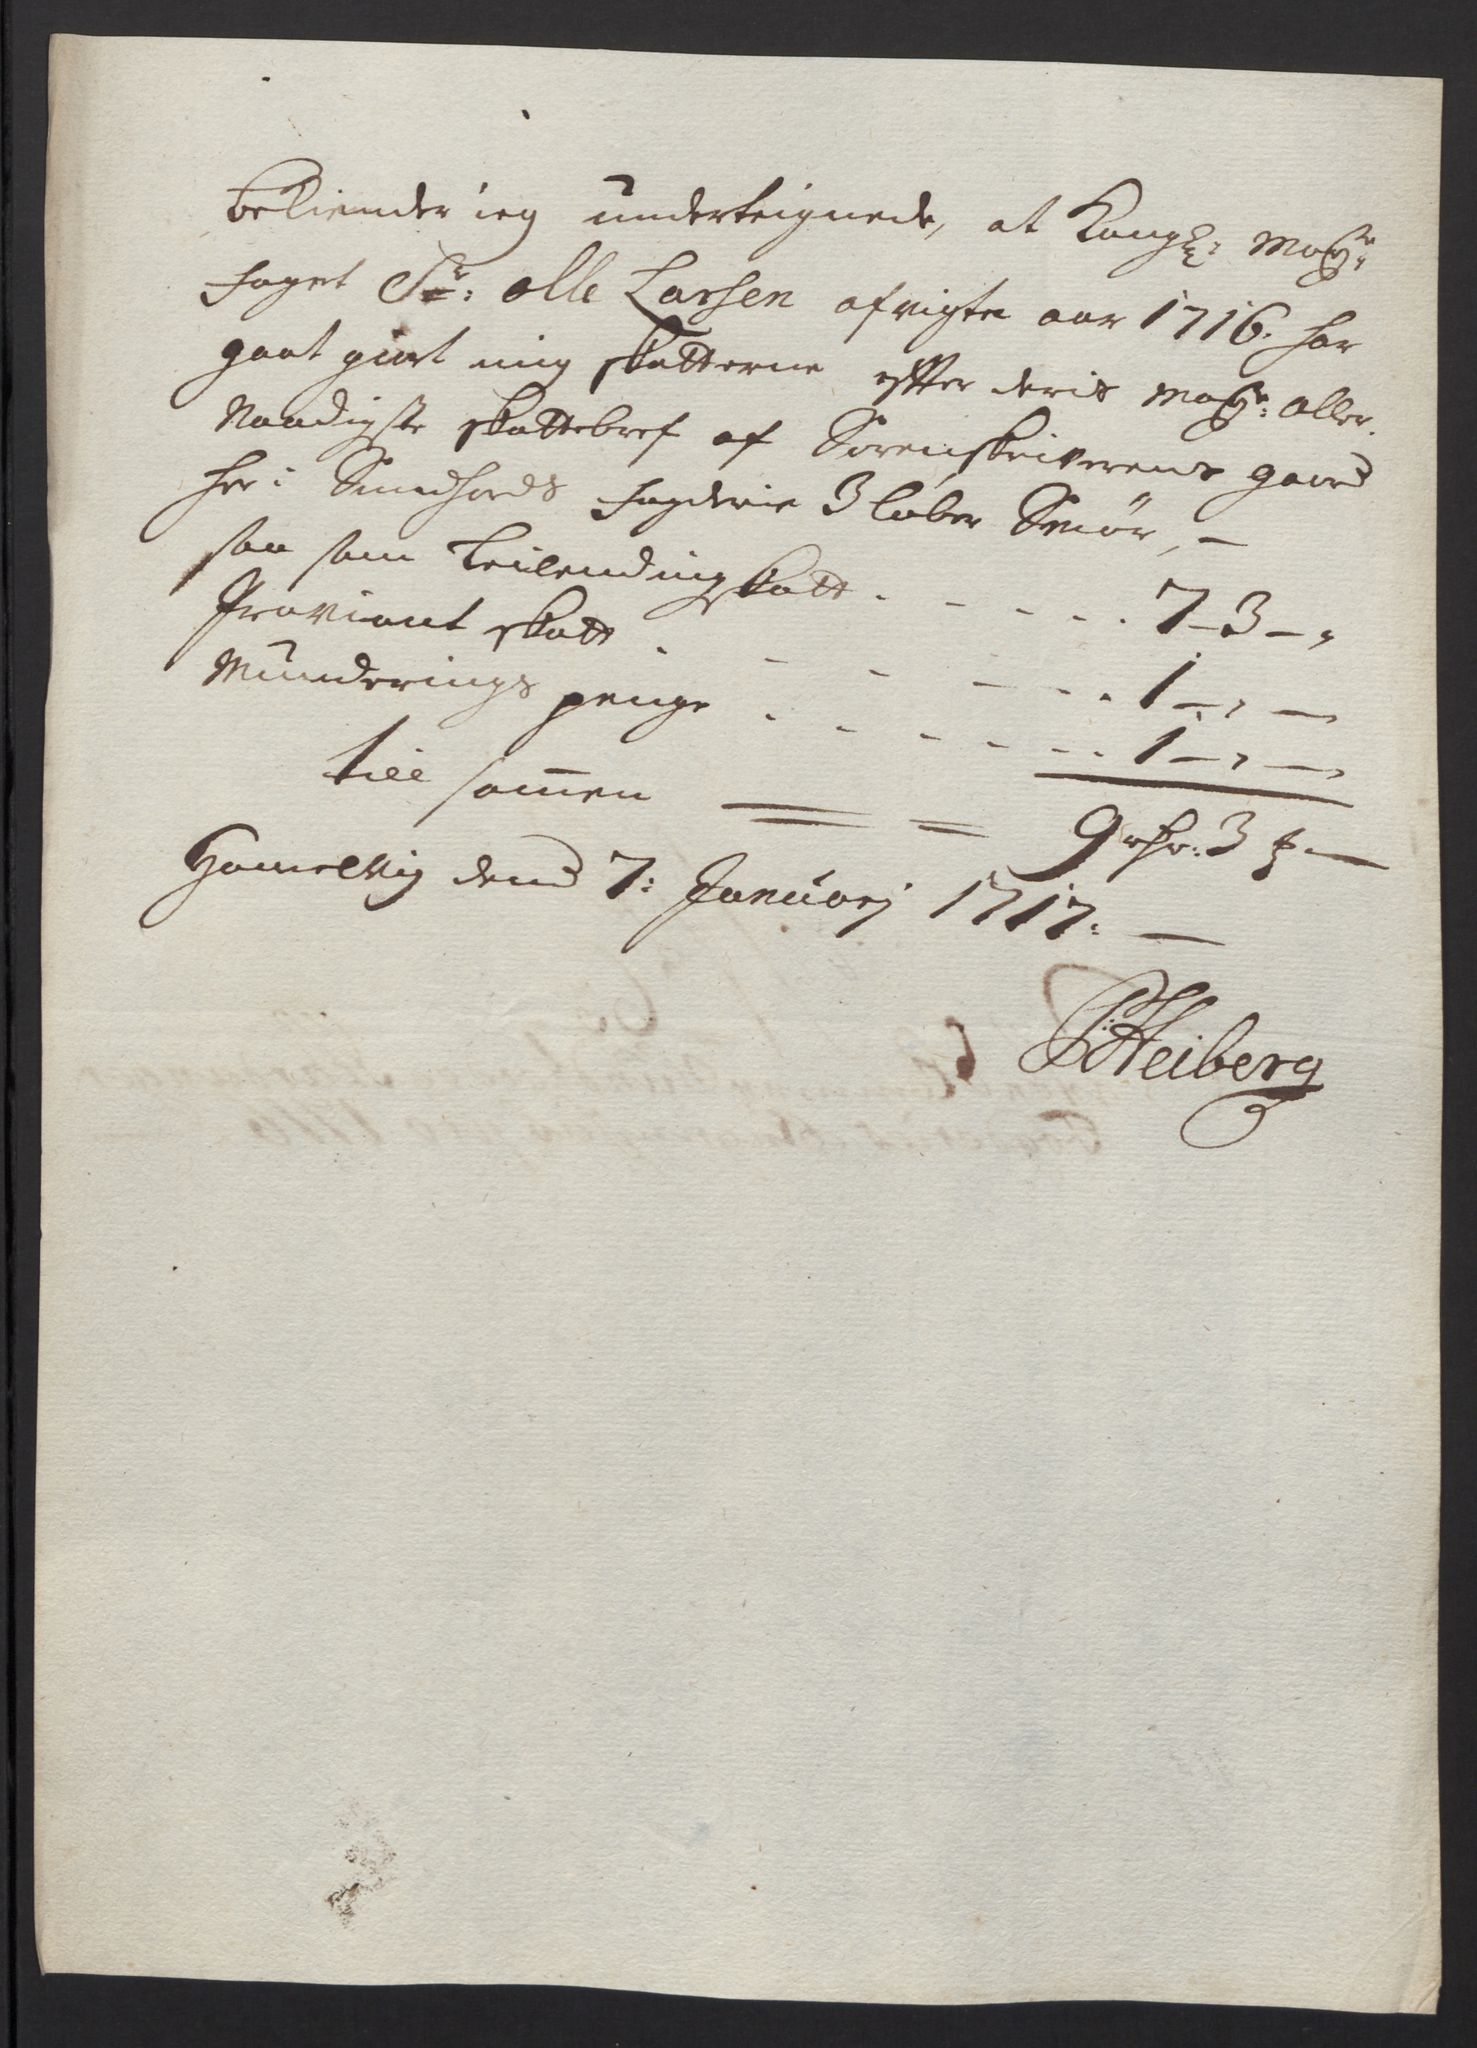 Bekiender ieg underteignede, at Kongl: May:ts
Foget Sr: Olle Larsen afvigte aar 1716. har
gaat giort mig skatterne efter deris May:ts aller
Naadigste skattebref af Sorenskriverens gaard
her i Sundfiords Fogderie 3 løber Smør, –
saa som Leilending skatt . - - - . 7–3–,
Proviant skatt . - - - - - . 1–,–
Munderings penge . - - - - - . 1–,–
till sammen == = 9 rdr: 3 ƒ –
Hamelvig dend 7: Januarj 1717. –
PHeiberg